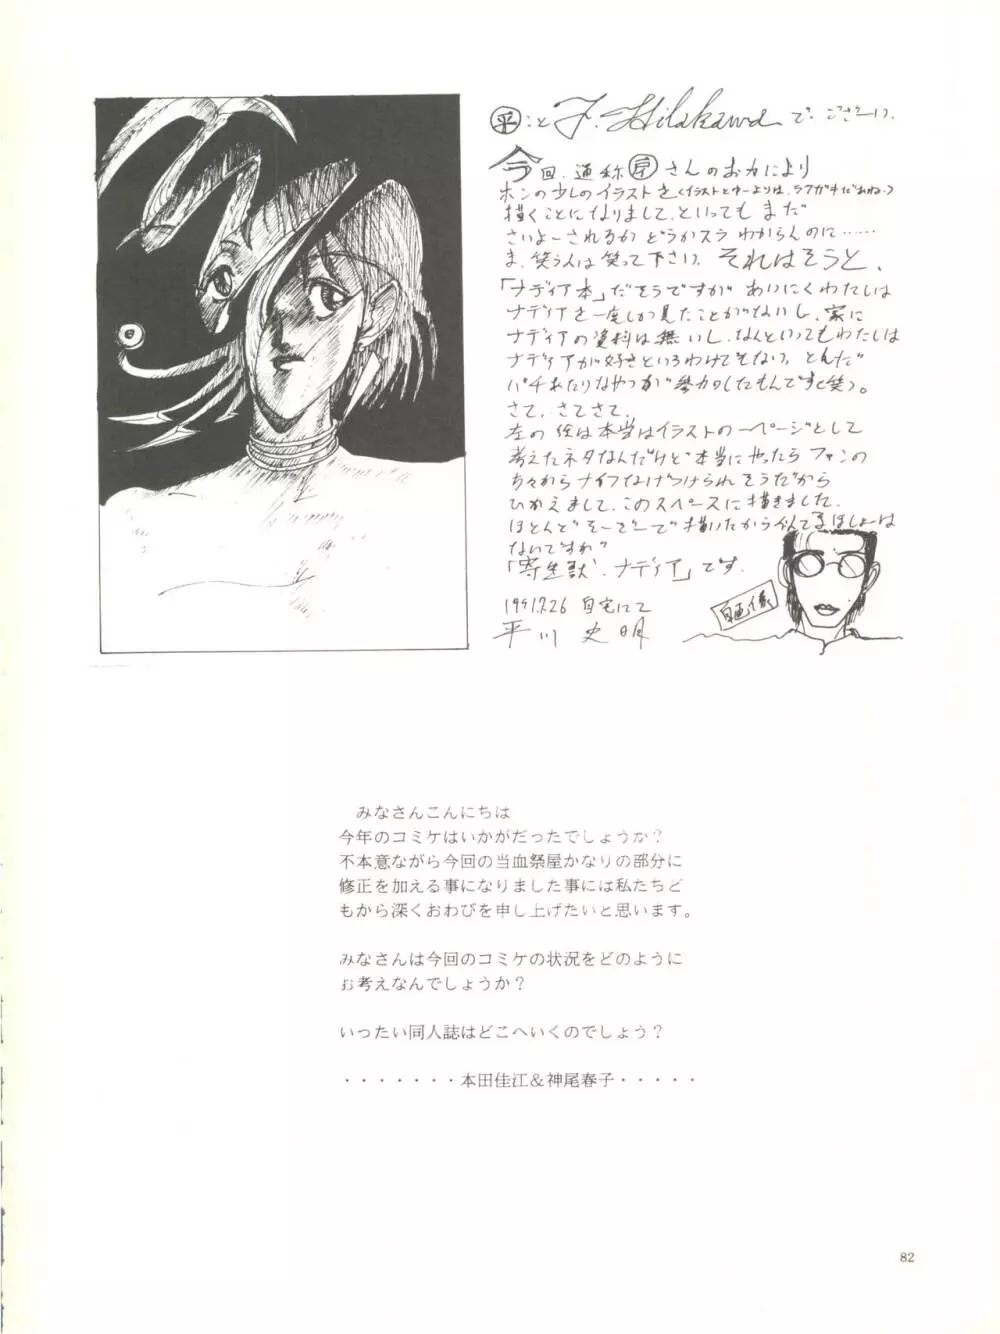 ㊥こと F. Hilakawa で ございい.
今回、通称 さんのお力により
ホンの少しのイラストを(イラストとゆーよりは、ラクガキだわね.)
描くことになりまして、といっても まだ
さいよーされるか どうかスラ わからんのに……
ま、笑う人は笑って下さい. それはそうと、
「ナディア本」だそうですが あいにくわたしは
ナディアを一度しか見たことがないし、家に
ナディアの資料は無いし、なんといってもわたしは
ナディアが好きというわけでもない. とんだ
バチあたりなやつが参加したもんです(笑)。
さて、さてさて.
左の絵は本当はイラストの一ページとして
考えたネタなんだけど本当にやったらファンの
方々からナイフなげつけられそうだから
ひかえまして、このスペースに描きました.
ほとんどそーぞーで描いたから似てるほしょーは
ないですわ"
「寄生獣・ナディア」です.
1991.7.26 自宅にて
平川 史明
自画像
みなさんこんにちは
今年のコミケはいかがだったでしょうか?
不本意ながら今回の当血祭屋かなりの部分に
修正を加える事になりました事には私たちど
もから深くおわびを申し上げたいと思います。
みなさんは今回のコミケの状況をどのように
お考えなんでしょうか?
いったい同人誌はどこへいくのでしょう?
・・・・・・・本田佳江&神尾春子・・・・・
82